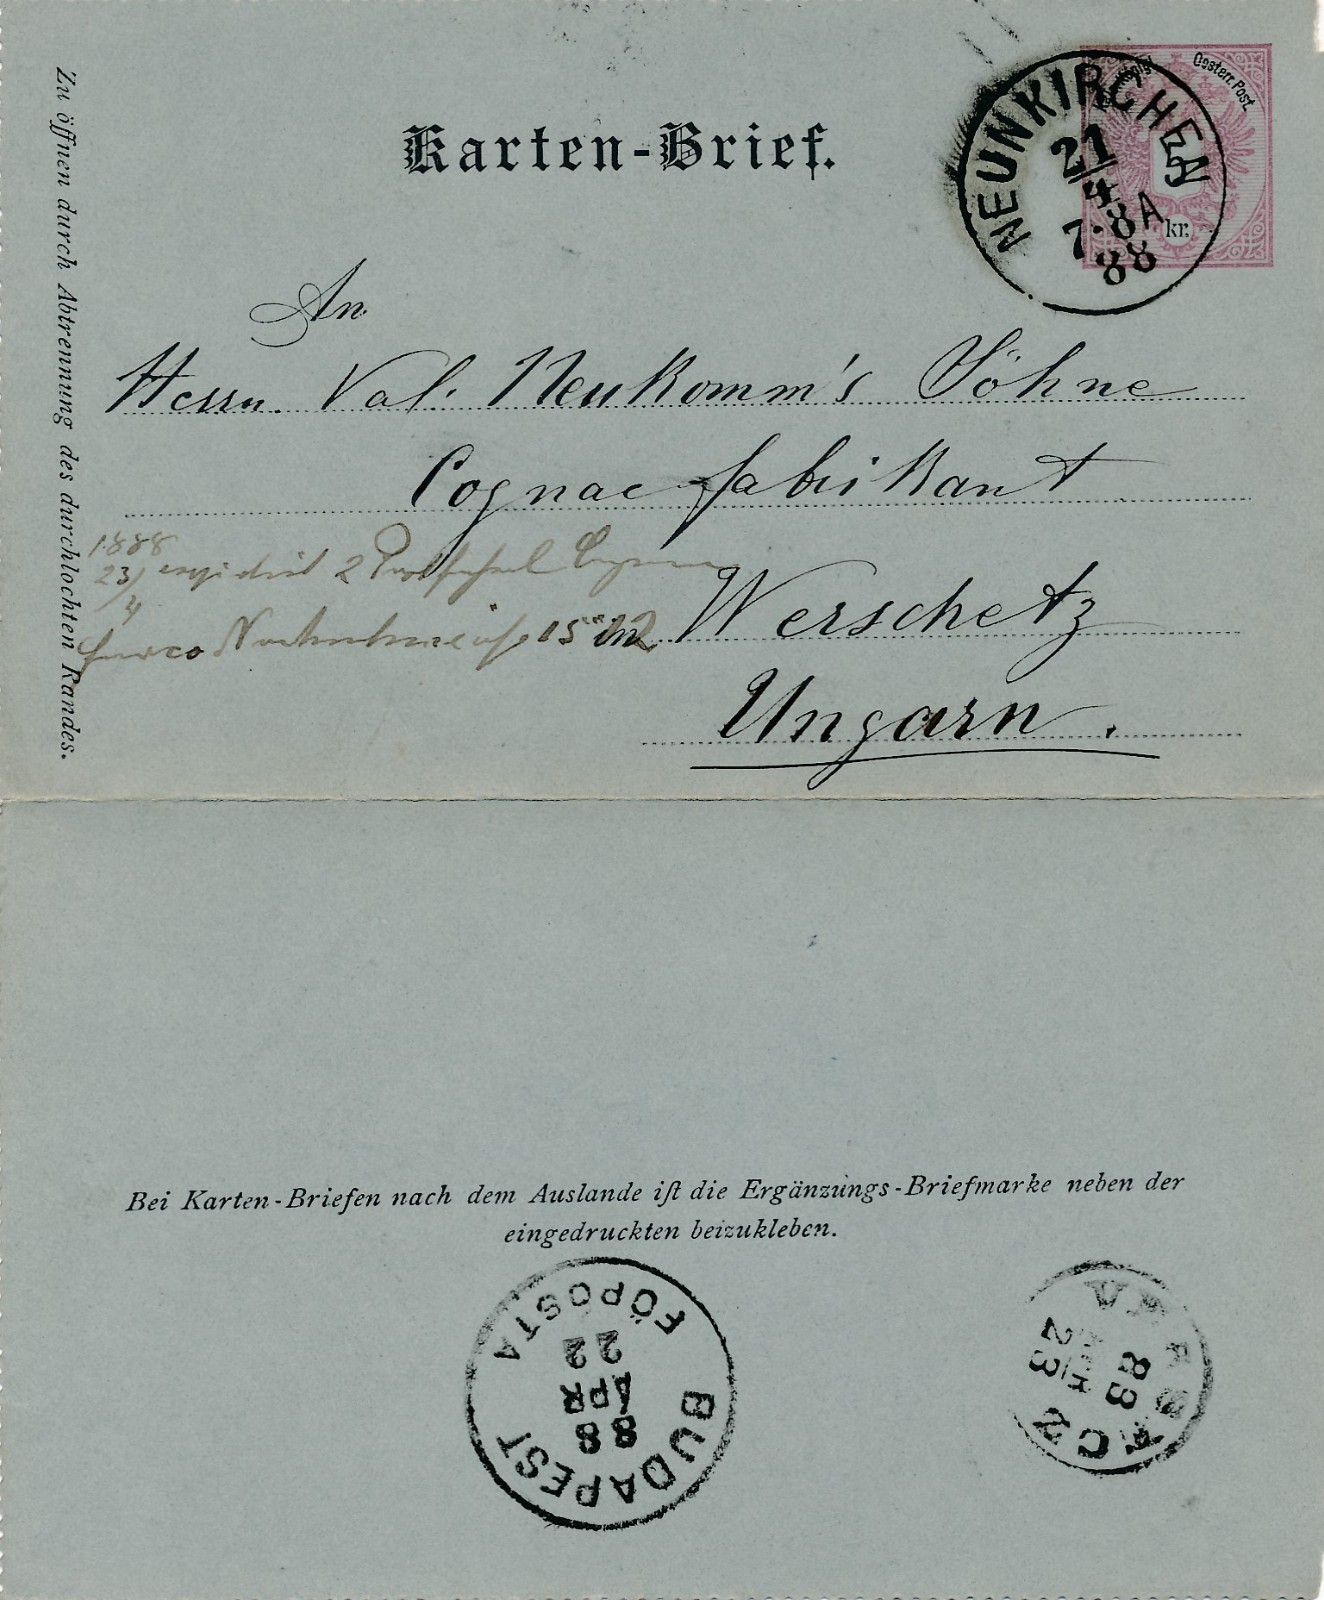 Karten-Brief.
Oesterr. Post.
kr.
NEUNKIRCHEN
21/4
7·8A
88
Zu öffnen durch Abtrennung des durchlochten Randes.
An
Herrn Val. Neukomm's Söhne
Cognacfabrikant
1888
23/4
2
franco Nachnahme 15
in Werschetz
Ungarn.
Bei Karten-Briefen nach dem Auslande iſt die Ergänzungs-Briefmarke neben der
eingedruckten beizukleben.
BUDAPEST
FŐPOSTA
88
APR
22
88
23